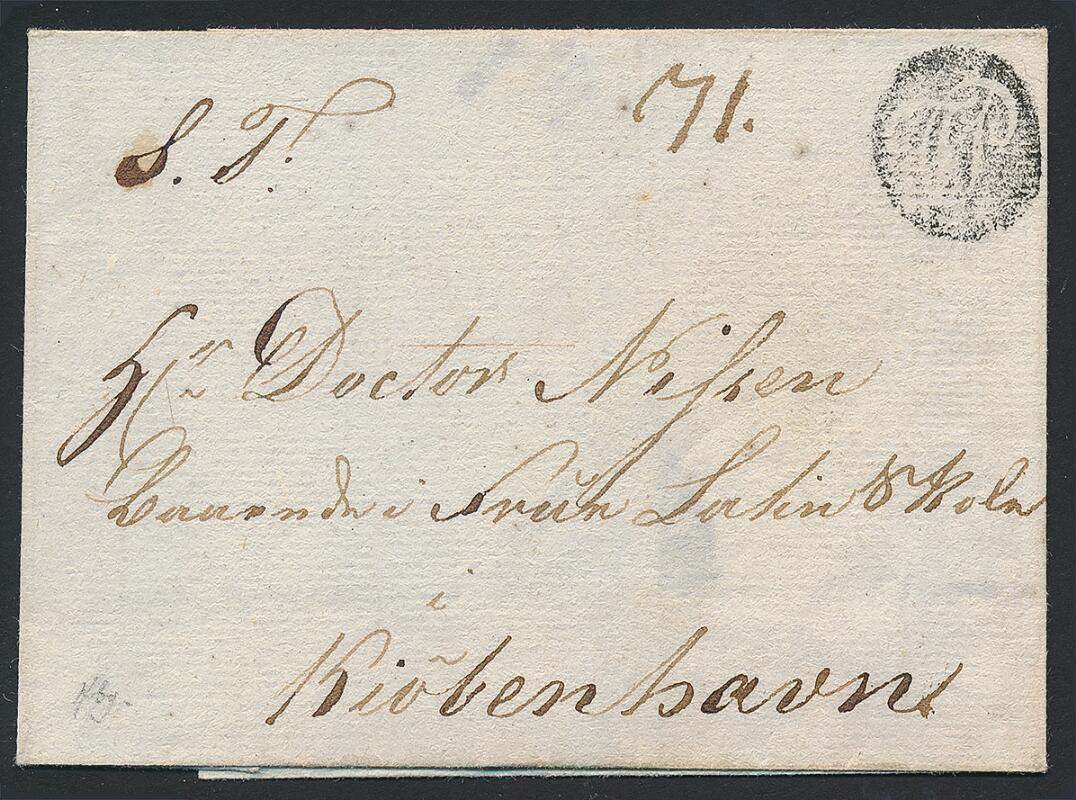 S. T. 71.
Hr Doctor Nissen
i Frue Latin Skole
i
Kiöbenhavn